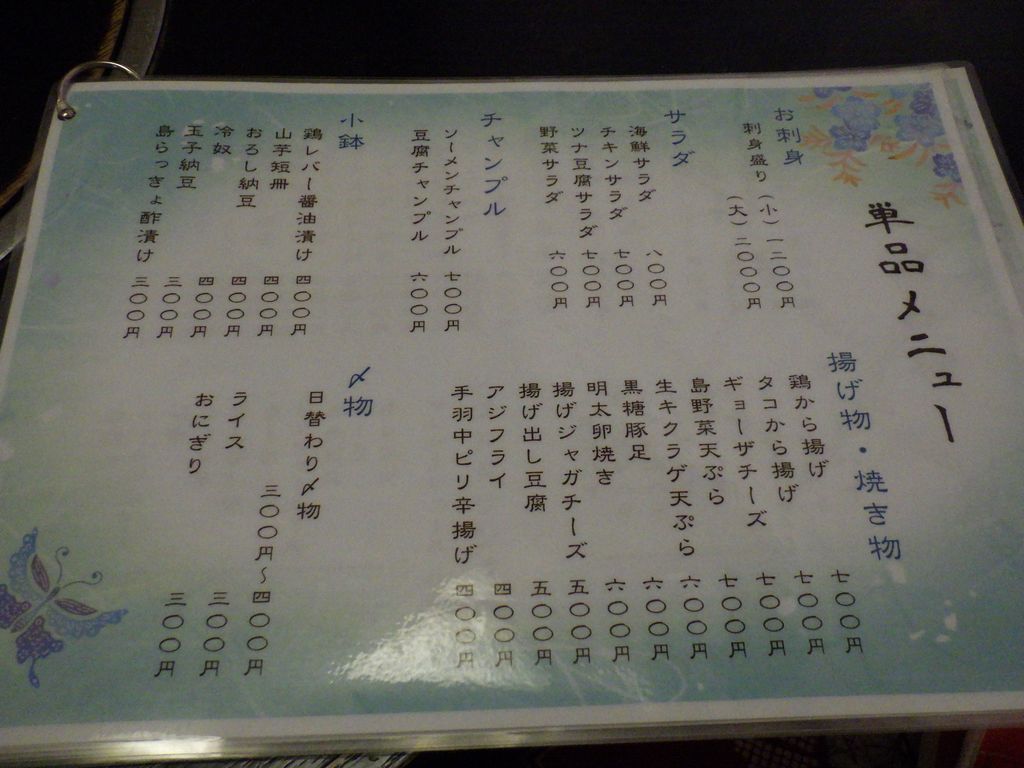 単品メニュー
お刺身
刺身盛り (小) 一二〇〇円
(大) 二〇〇〇円
サラダ
海鮮サラダ 八〇〇円
チキンサラダ 七〇〇円
ツナ豆腐サラダ 七〇〇円
野菜サラダ 六〇〇円
チャンプル
ソーメンチャンプル 七〇〇円
豆腐チャンプル 六〇〇円
小鉢
鶏レバー醤油漬け 四〇〇円
山芋短冊 四〇〇円
おろし納豆 四〇〇円
冷奴 四〇〇円
玉子納豆 三〇〇円
島らっきょ酢漬け 三〇〇円
揚げ物・焼き物
鶏から揚げ 七〇〇円
タコから揚げ 七〇〇円
ギョーザチーズ 七〇〇円
島野菜天ぷら 七〇〇円
生キクラゲ天ぷら 六〇〇円
黒糖豚足 六〇〇円
明太卵焼き 六〇〇円
揚げジャガチーズ 五〇〇円
揚げ出し豆腐 五〇〇円
アジフライ 四〇〇円
手羽中ピリ辛揚げ 四〇〇円
〆物
日替わり〆物
三〇〇円～四〇〇円
ライス 三〇〇円
おにぎり 三〇〇円